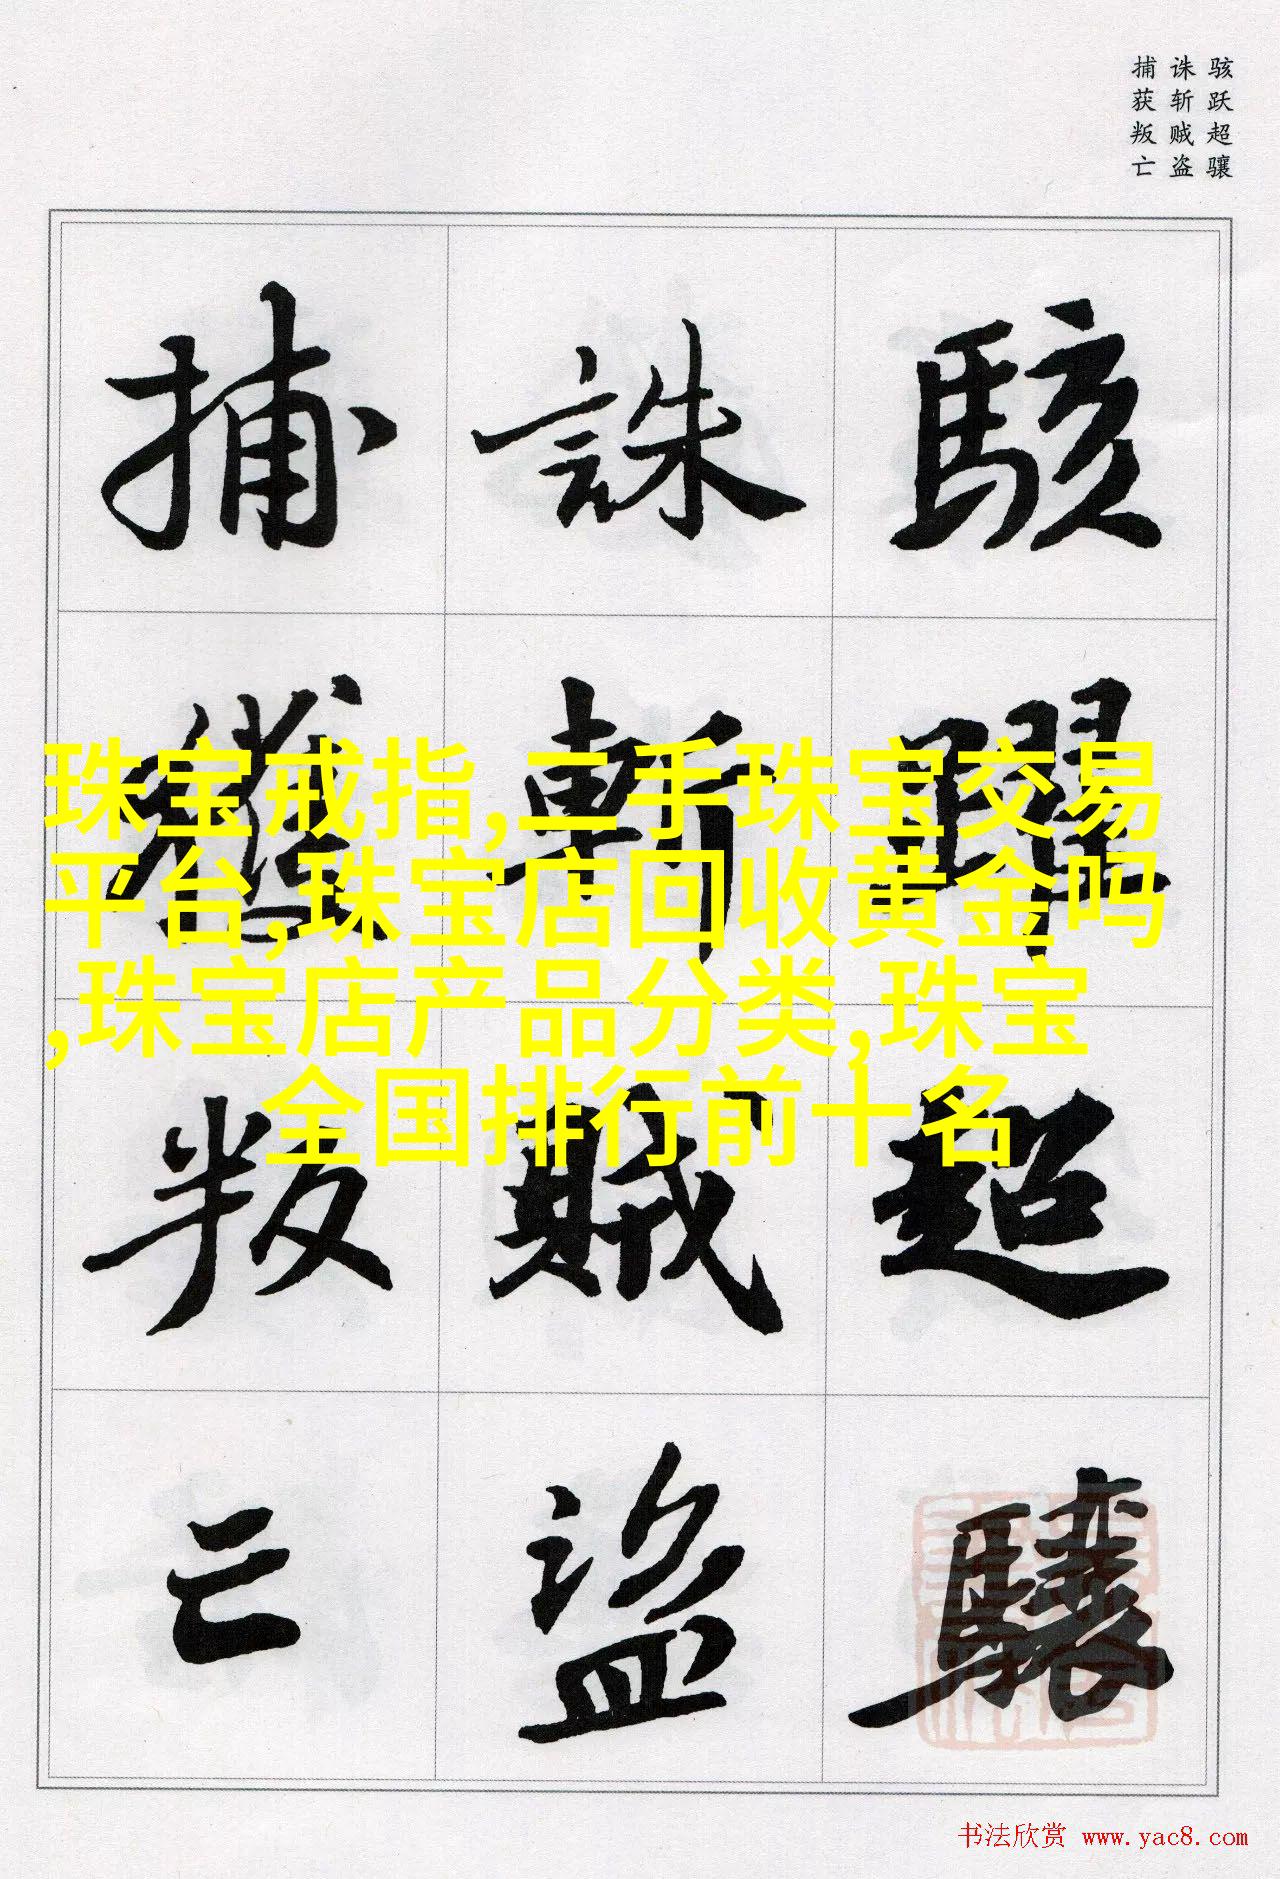 骇跃超骧
诛斩贼盗
捕获叛亡
駭躍超驤
誅斬賊盜
捕獲叛亡
珠宝戒指,二手珠宝交易
平台,珠宝店回收黄金吗
,珠宝店产品分类,珠宝
全国排行前十名
书法欣赏 www.yac8.com